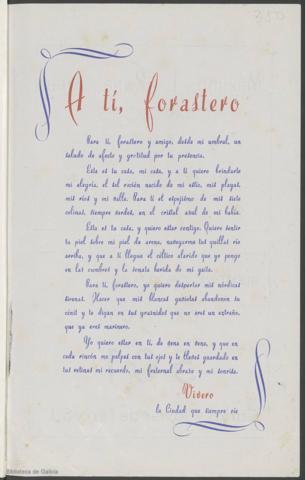 350
A tí, forastero
Para tí, forastero y amigo, desde mi umbral, un
saludo de afecto y gratitud por tu presencia.
Esta es tu casa, mi casa, y a tí quiero brindarte
mi alegría, el sol recién nacido de mi estío, mis playas,
mis ríos y mi valle. Para tí el espejismo de mis siete
colinas, siempre verdes, en el cristal azul de mi bahía.
Esta es tu casa, y quiero estar contigo. Quiero sentir
tu piel sobre mi piel de arena, navegarme tus quillas río
arriba, y que a tí llegue el céltico alarido que yo pongo
en las cumbres y la sonata herida de mi gaita.
Para tí, forastero, yo quiero despertar mis nórdicas
sirenas. Hacer que mis blancas gaviotas abandonen tu
cénit y te digan en sus graznidos que no eres un extraño,
que ya eres marinero.
Yo quiero estar en tí, de vena en vena, y que en
cada rincón me palpes con tus ojos y te lleves guardado en
tus retinas mi recuerdo, mi fraternal abrazo y mi sonrisa.
Vivero
la Ciudad que siempre ríe
Biblioteca de Galicia